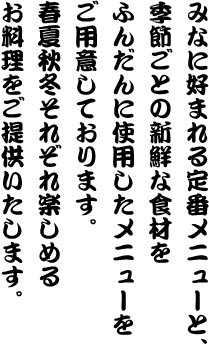 みなに好まれる定番メニューと、
季節ごとの新鮮な食材を
ふんだんに使用したメニューを
ご用意しております。
春夏秋冬それぞれ楽しめる
お料理をご提供いたします。